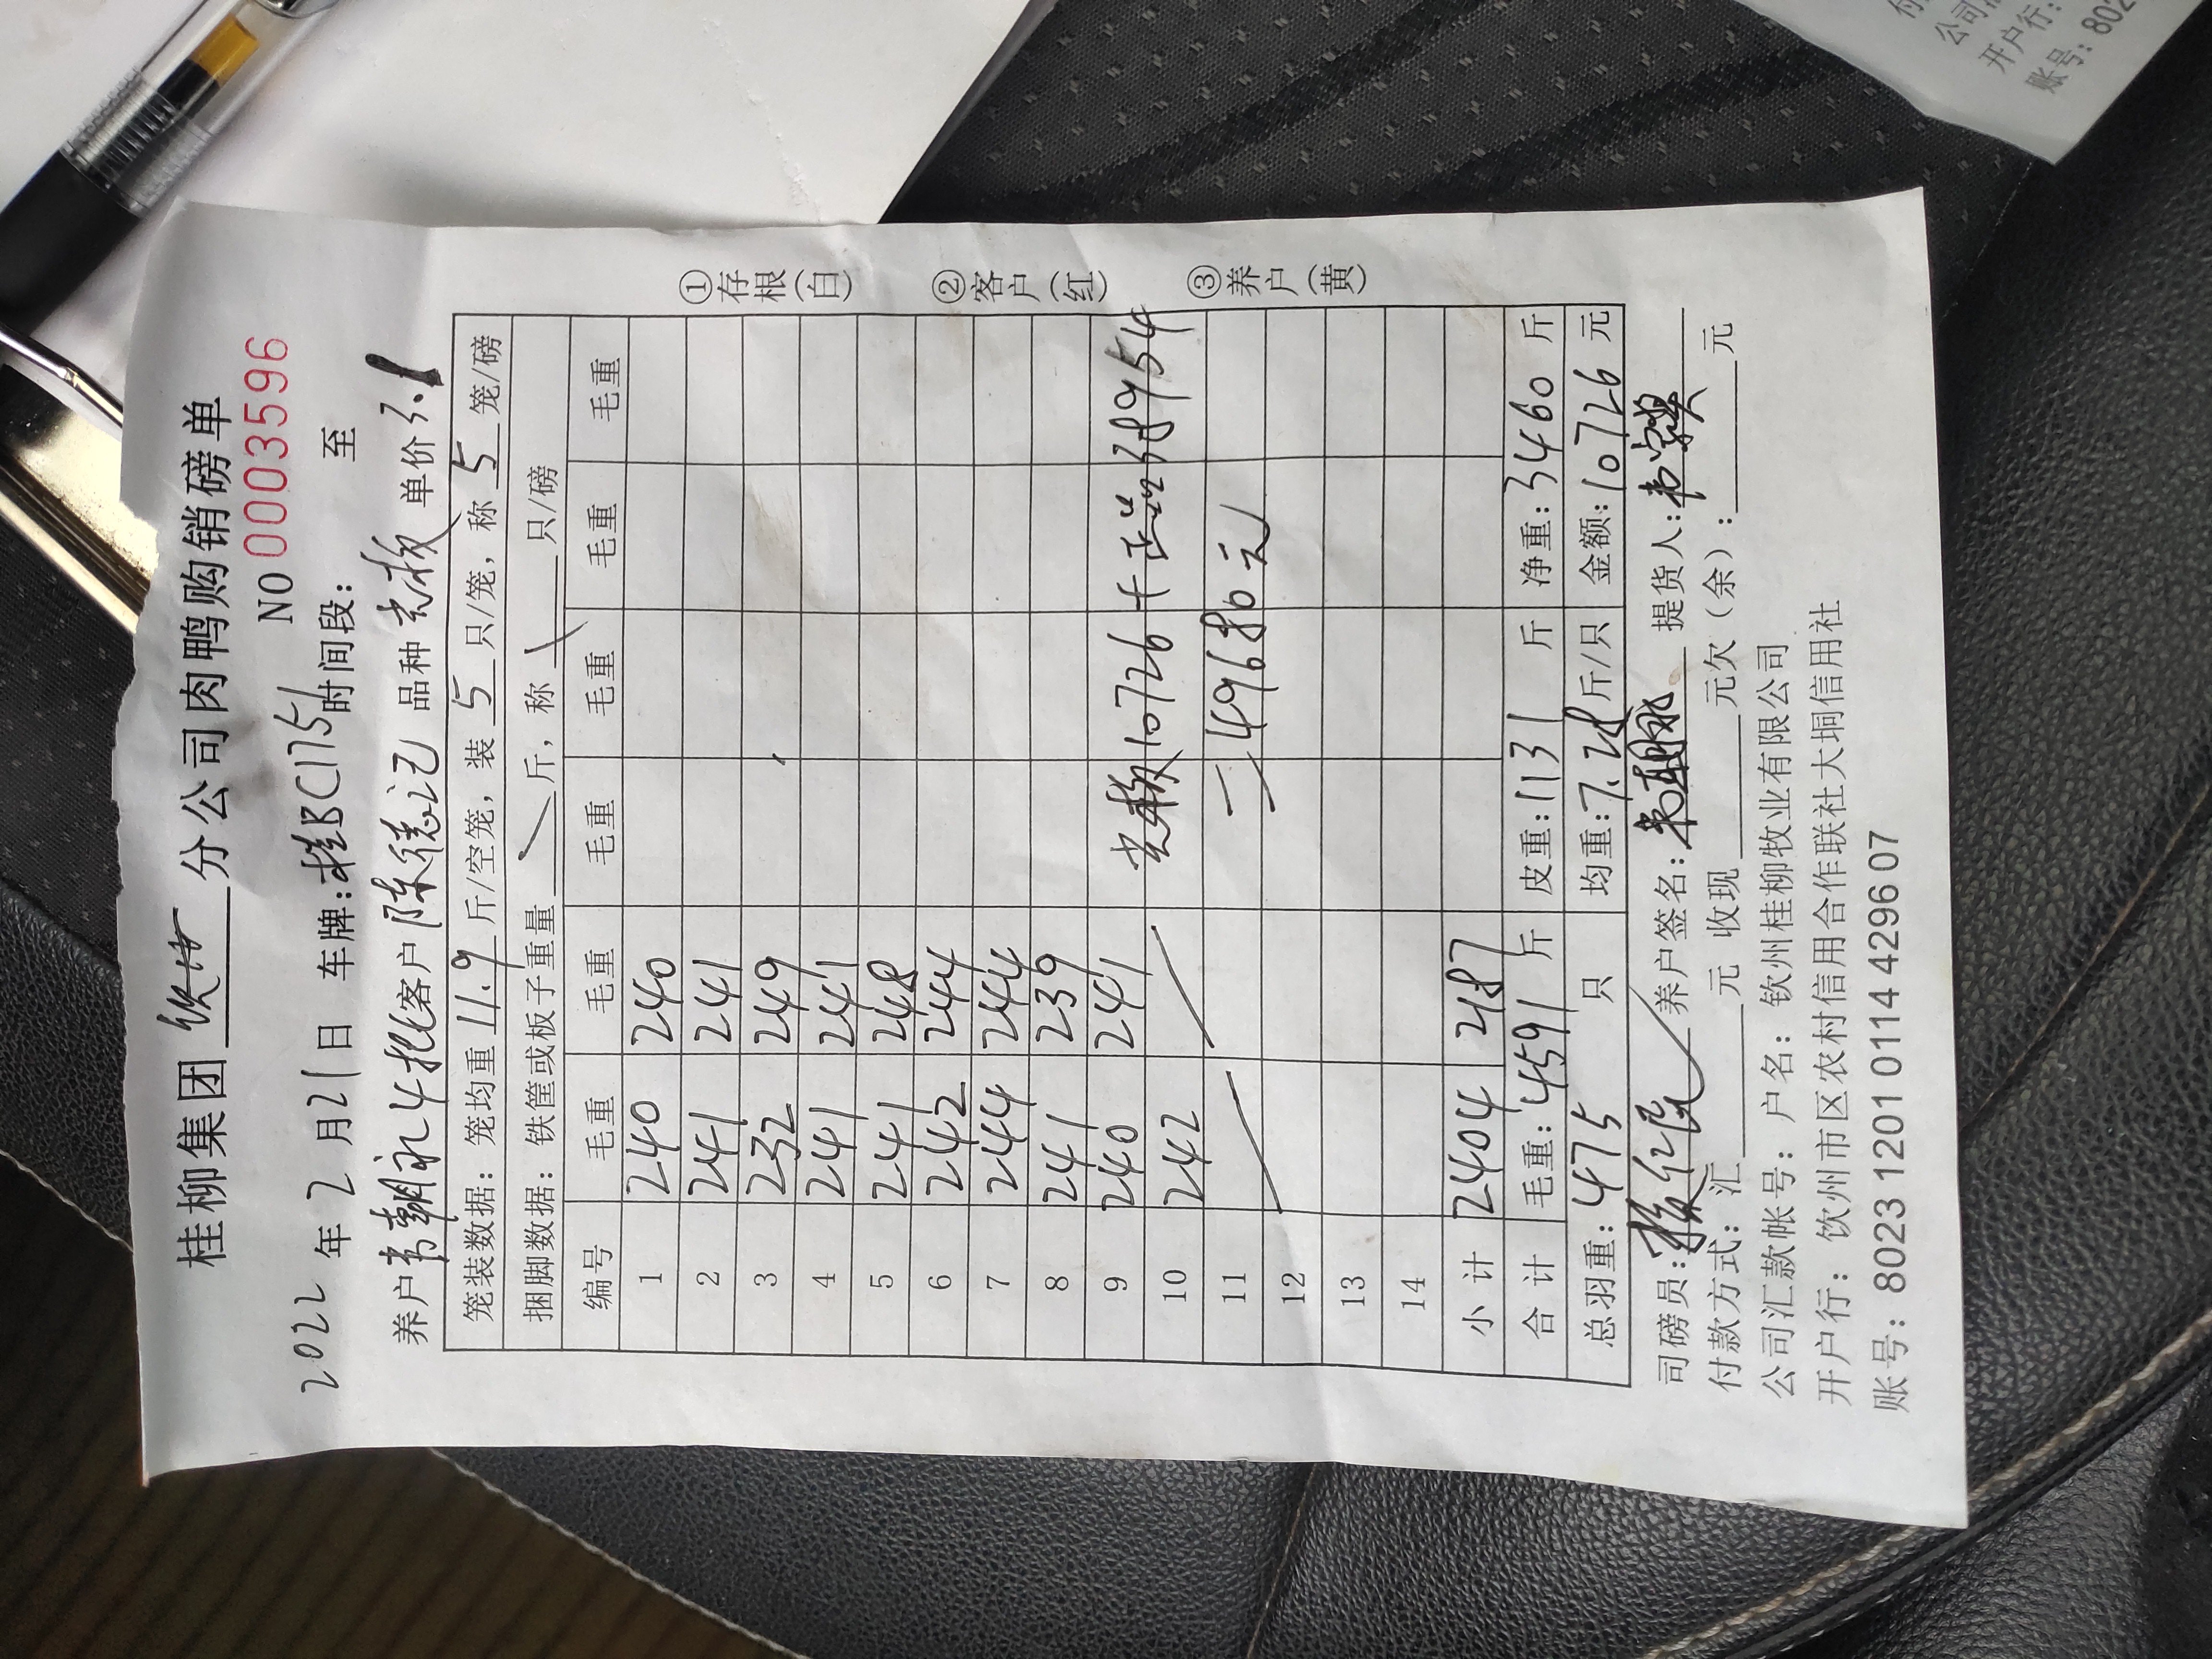 桂柳集团 钦州 分公司肉鸭购销磅单
NO 0003596
2022 年 2 月 21 日 车牌:桂BC1175 时间段: 至
养户 韦朝永4批 客户 陈德记 品种 老板 单价 3.1
笼装数据: 笼均重 11.9 斤/空笼, 装 5 只/笼, 称 5 笼/磅
捆脚数据: 铁筐或板子重量 斤, 称 只/磅
编号 毛重 毛重 毛重 毛重 毛重 毛重
1 240 240
2 241 241
3 232 249
4 241 241
5 241 248
6 242 244
7 244 244
8 241 239
9 240 241
10 242 老板10726+ 38954
11 =49680元
12
13
14
小计 2404 2187
合计 毛重:4591 斤 皮重:1131 斤 净重:3460 斤
总羽重:475 只 均重:7.28 斤/只 金额:10726 元
司磅员: 养户签名: 提货人:
付款方式: 汇 元 收现 元欠(余): 元
公司汇款帐号: 户名: 钦州桂柳牧业有限公司
开户行: 钦州市区农村信用合作联社大垌信用社
账号: 8023 1201 0114 4296 07
①存根(白)
②客户(红)
③养户(黄)
付
公司汇
开户行:
账号: 802